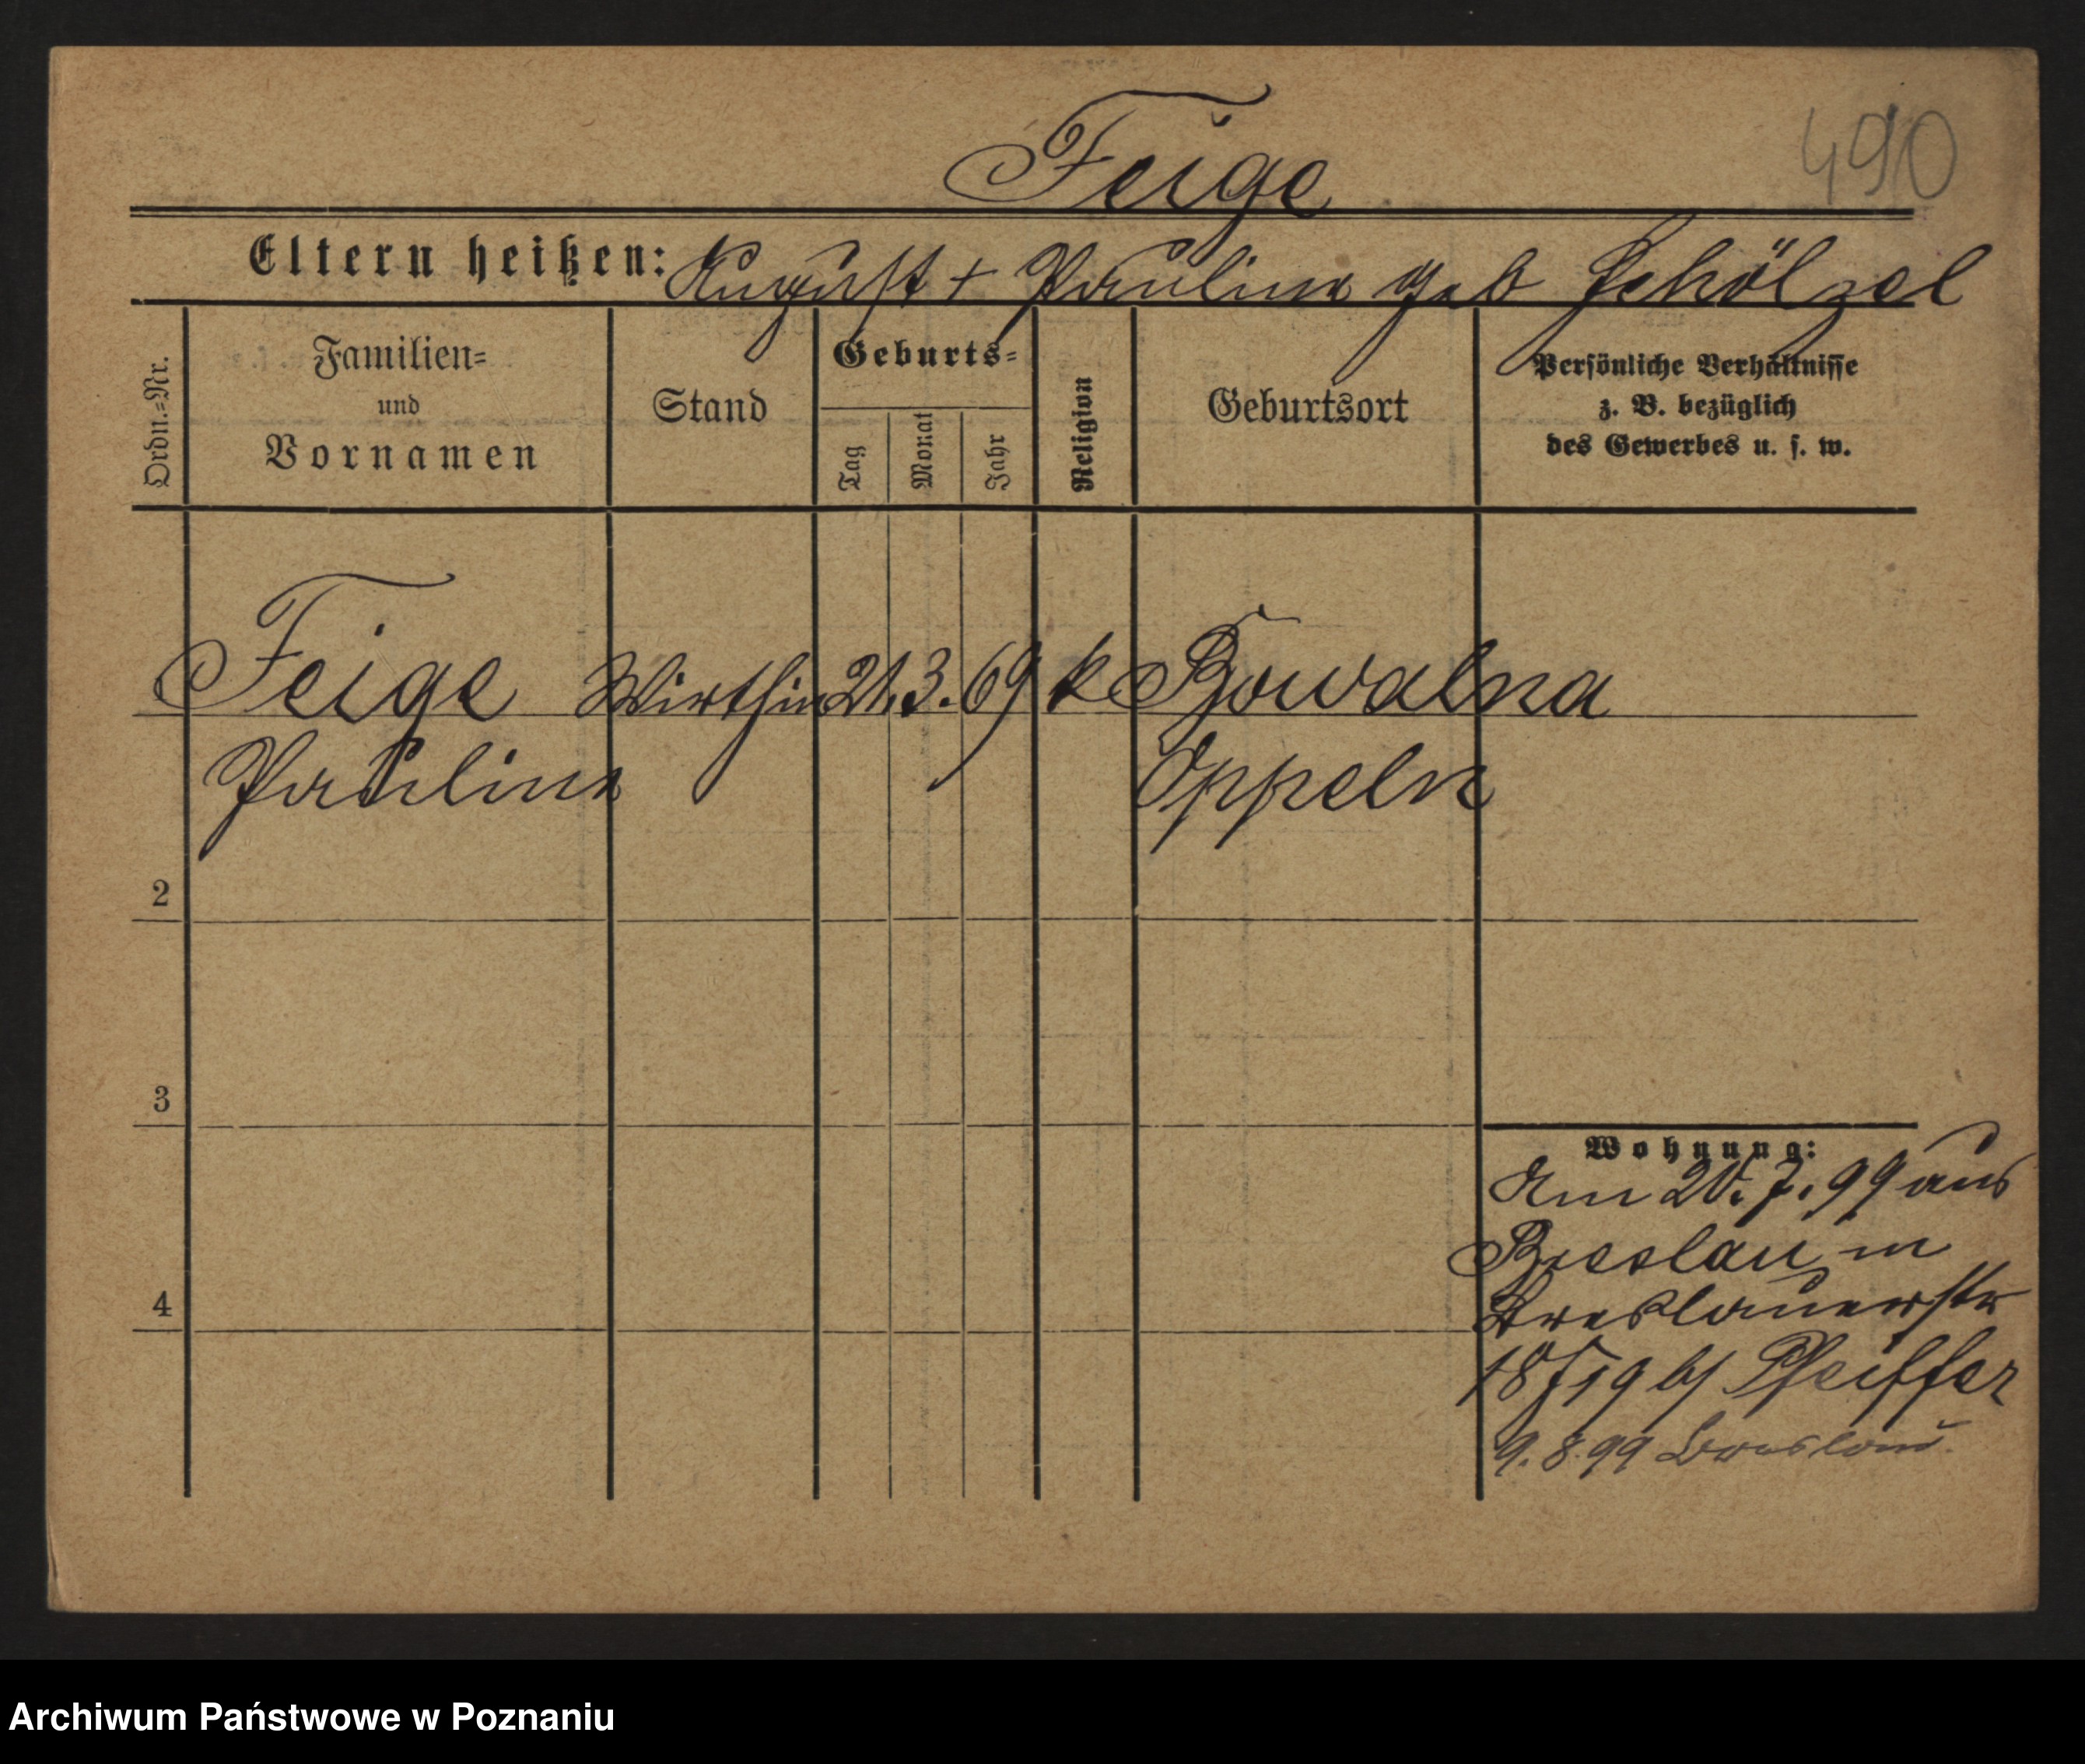 Feige
490
Eltern heißen: August + Pauline geb Schölzel
Ordn.=Nr.
Familien=
und
Vornamen
Stand
Geburts=
Tag
Monat
Jahr
Religion
Geburtsort
Persönliche Verhältnisse
z. B. bezüglich
des Gewerbes u. s. w.
Feige Wirthin 21. 3. 69 k Bowalna
Pauline Oppeln
2
3
4
Wohnung:
Am 20. 7. 99 aus
Breslau in
Breslauerstr
18/19 b/ Pfeiffer
9. 8. 99 Breslau
Archiwum Państwowe w Poznaniu